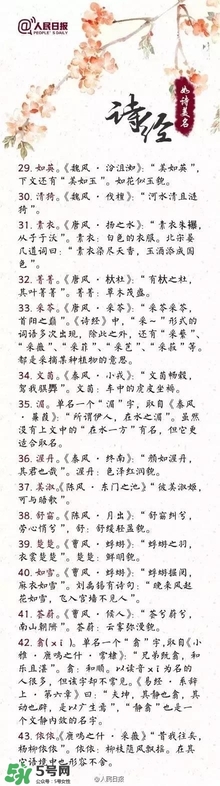 人民日报
PEOPLE'S DAILY
如诗美名
诗经
29. 如英。《魏风·汾沮洳》:“美如英”,
下文还有“美如玉”。如花似玉貌。
30. 清猗。《魏风·伐檀》:“河水清且涟
猗”。
31. 素衣。《唐风·扬之水》:“素衣朱襮,
从子于沃”。素衣:白色的衣服。北宋晏
几道词曰:“素衣染尽天香,玉酒添成国
色”。
32. 菁菁。《唐风·杕杜》:“有杕之杜,
其叶菁菁”。菁菁:草木茂盛。
33. 采苓。《唐风·采苓》:“采苓采苓,
首阳之巅”。《诗经》中,“采一”形式的
词语多次出现,除此之外,还有“采蘩”、
“采薇”、“采菲”、“采艺”、“采菽”等。
都是采摘某种植物的意思。
34. 文茵。《秦风·小戎》:“文茵畅毂,
驾我骐馵”。文茵:车中的虎皮坐褥。
35. 湄。单名一个“湄”字,取自《秦风
·蒹葭》:“所谓伊人,在水之湄”。虽然
没有上文中的“在水一方”有名,但它更
适合取名。
36. 渥丹。《秦风·终南》:“颜如渥丹,
其君也哉”。渥丹:色泽红润貌。
37. 美淑。《陈风·东门之池》:“彼美淑姬,
可与晤歌”。
38. 舒窈。《陈风·月出》:“舒窈纠兮,
劳心悄兮”。舒:舒缓轻盈貌。
39. 楚楚。《曹风·蜉蝣》:“蜉蝣之羽,
衣裳楚楚”。楚楚:鲜明貌。
40. 如雪。《曹风·蜉蝣》:“蜉蝣掘阅,
麻衣如雪”。刘禹锡有诗句:“晚来风起
花如雪,飞入宫墙不见人”。
41. 荟蔚。《曹风·候人》:“荟兮蔚兮,
南山朝隮”。荟蔚:云雾弥漫貌。
42. 翕(xi)。单名一个“翕”字,取自《小
雅·鹿鸣之什·常棣》:“兄弟既翕,和
乐且湛”。翕:和顺。以读音xi为名的
人很多,但该字却不常见。《易经·系辞
上·第六章》曰:“夫坤,其静也翕,其
动也辟,是以广生焉”,“静翕”也是一
个文静内敛的名字。
43. 依依。《鹿鸣之什·采薇》“昔我往矣,
杨柳依依”。依依:柳枝随风飘拂。在其
它语境中也形容不舍。
@人民日报
5号网